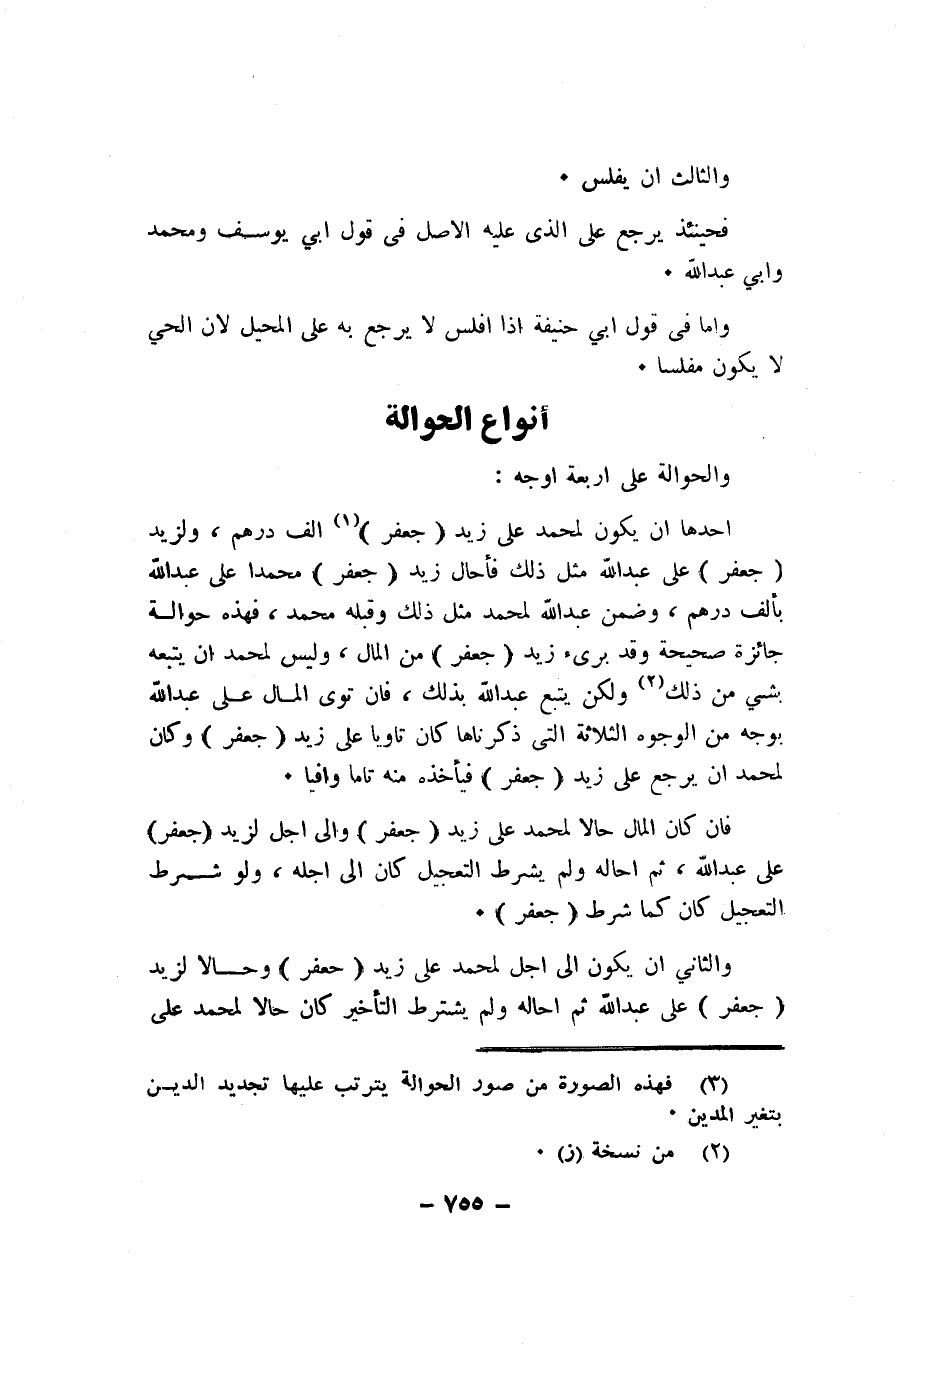 والثالث ان يفلس ٠
فحينئذ يرجع على الذى عليه الاصل فى قول ابي يوسف ومحمد
وابي عبدالله ٠
واما فى قول ابي حنيفة اذا افلس لا يرجع به على المحيل لان الحي
لا يكون مفلسا ٠
أنواع الحوالة
والحوالة على اربعة اوجه :
احدها ان يكون لمحمد على زيد ( جعفر )(١) الف درهم ، ولزيد
( جعفر ) على عبدالله مثل ذلك فأحال زيد ( جعفر ) محمدا على عبدالله
بألف درهم ، وضمن عبدالله لمحمد مثل ذلك وقبله محمد ، فهذه حوالة
جائزة صحيحة وقد برىء زيد ( جعفر ) من المال ، وليس لمحمد ان يتبعه
بشي من ذلك(٢) ولكن يتبع عبدالله بذلك ، فان توى المال على عبدالله
بوجه من الوجوه الثلاثة التى ذكرناها كان تاويا على زيد ( جعفر ) وكان
لمحمد ان يرجع على زيد ( جعفر ) فيأخذه منه تاما وافيا ٠
فان كان المال حالا لمحمد على زيد ( جعفر ) والى اجل لزيد (جعفر)
على عبدالله ، ثم احاله ولم يشرط التعجيل كان الى اجله ، ولو شرط
التعجيل كان كما شرط ( جعفر ) ٠
والثاني ان يكون الى اجل لمحمد على زيد ( حعفر ) وحالا لزيد
( جعفر ) على عبدالله ثم احاله ولم يشترط التأخير كان حالا لمحمد على
(٣) فهذه الصورة من صور الحوالة يترتب عليها تجديد الدين
بتغير المدين ٠
(٢) من نسخة (ز) ٠
- ٧٥٥ -